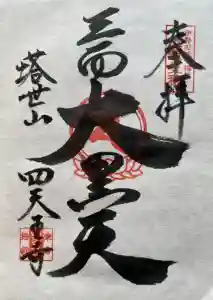 奉拝
三面大黒天
塔世山
四天王寺